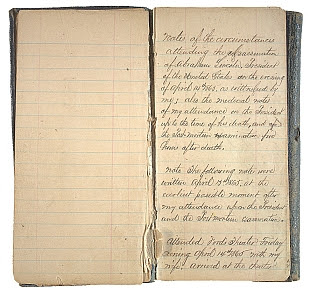 Notes of the circumstances
attending the assassination
of Abraham Lincoln, President
of the United States on the evening
of April 14th 1865, as witnessed by
me; also the medical notes
of my attendance on the President
up to the time of his death, and of
the Post-mortem examination five
hours after death.
Note The following notes were
written April 1865, at the
earliest possible moment after
my attendance upon the President
and the Post Mortem Examination.
Attended Fords Theater, Friday
evening April 14th 1865 with my
wife: arrived at the theater